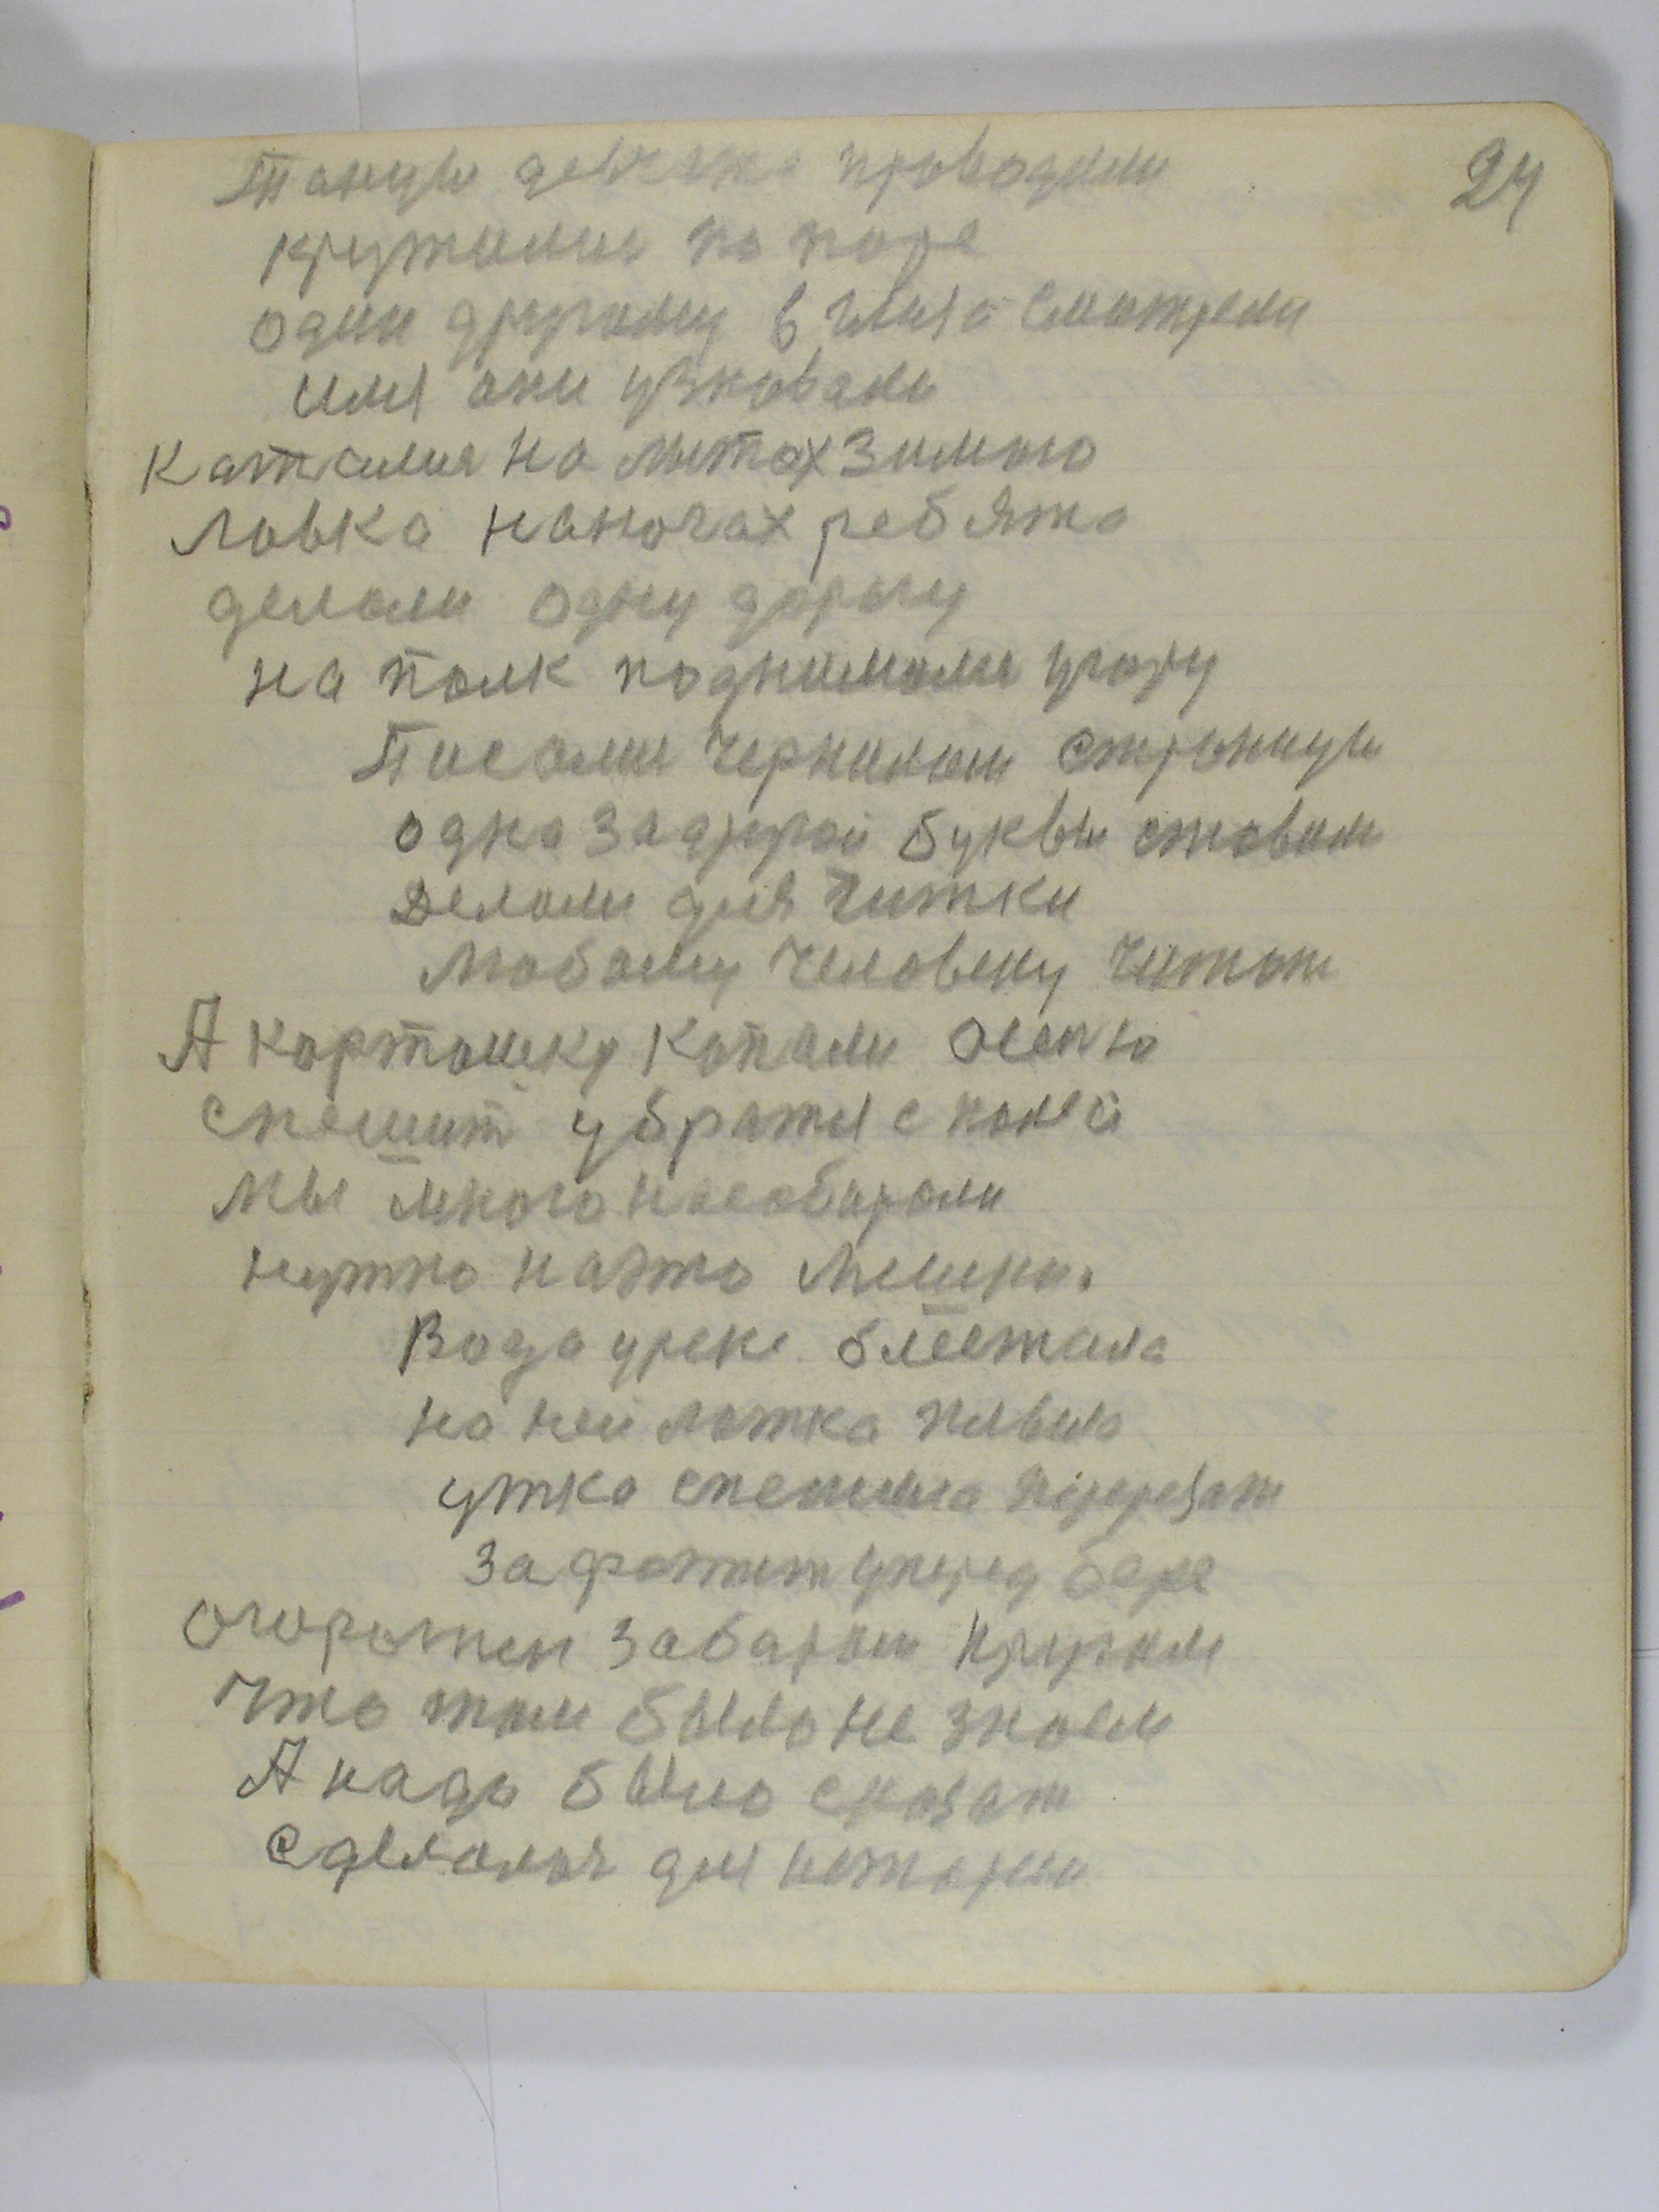 24
Танцы девчата проводили
кружились по паре
один другому в глаза смотрели
имя они узновали
Каталися на лыжах зимою
ловко наногах ребята
делали одну дорогу
на полк поднималися угору
Писали чернилом страницы
одна задругой буквы ставили
Делали для читки
Любому человеку читать
А картошку копали осеню
спешит убрать с полей
мы много насобирали
нужно наэто мешки.
Вода уреке блестала
на ней лотка плывла
утка спешила
за упиред
огорожен забаром кругом
Что там было не знаем
А надо было сказат
Сделалы для истории